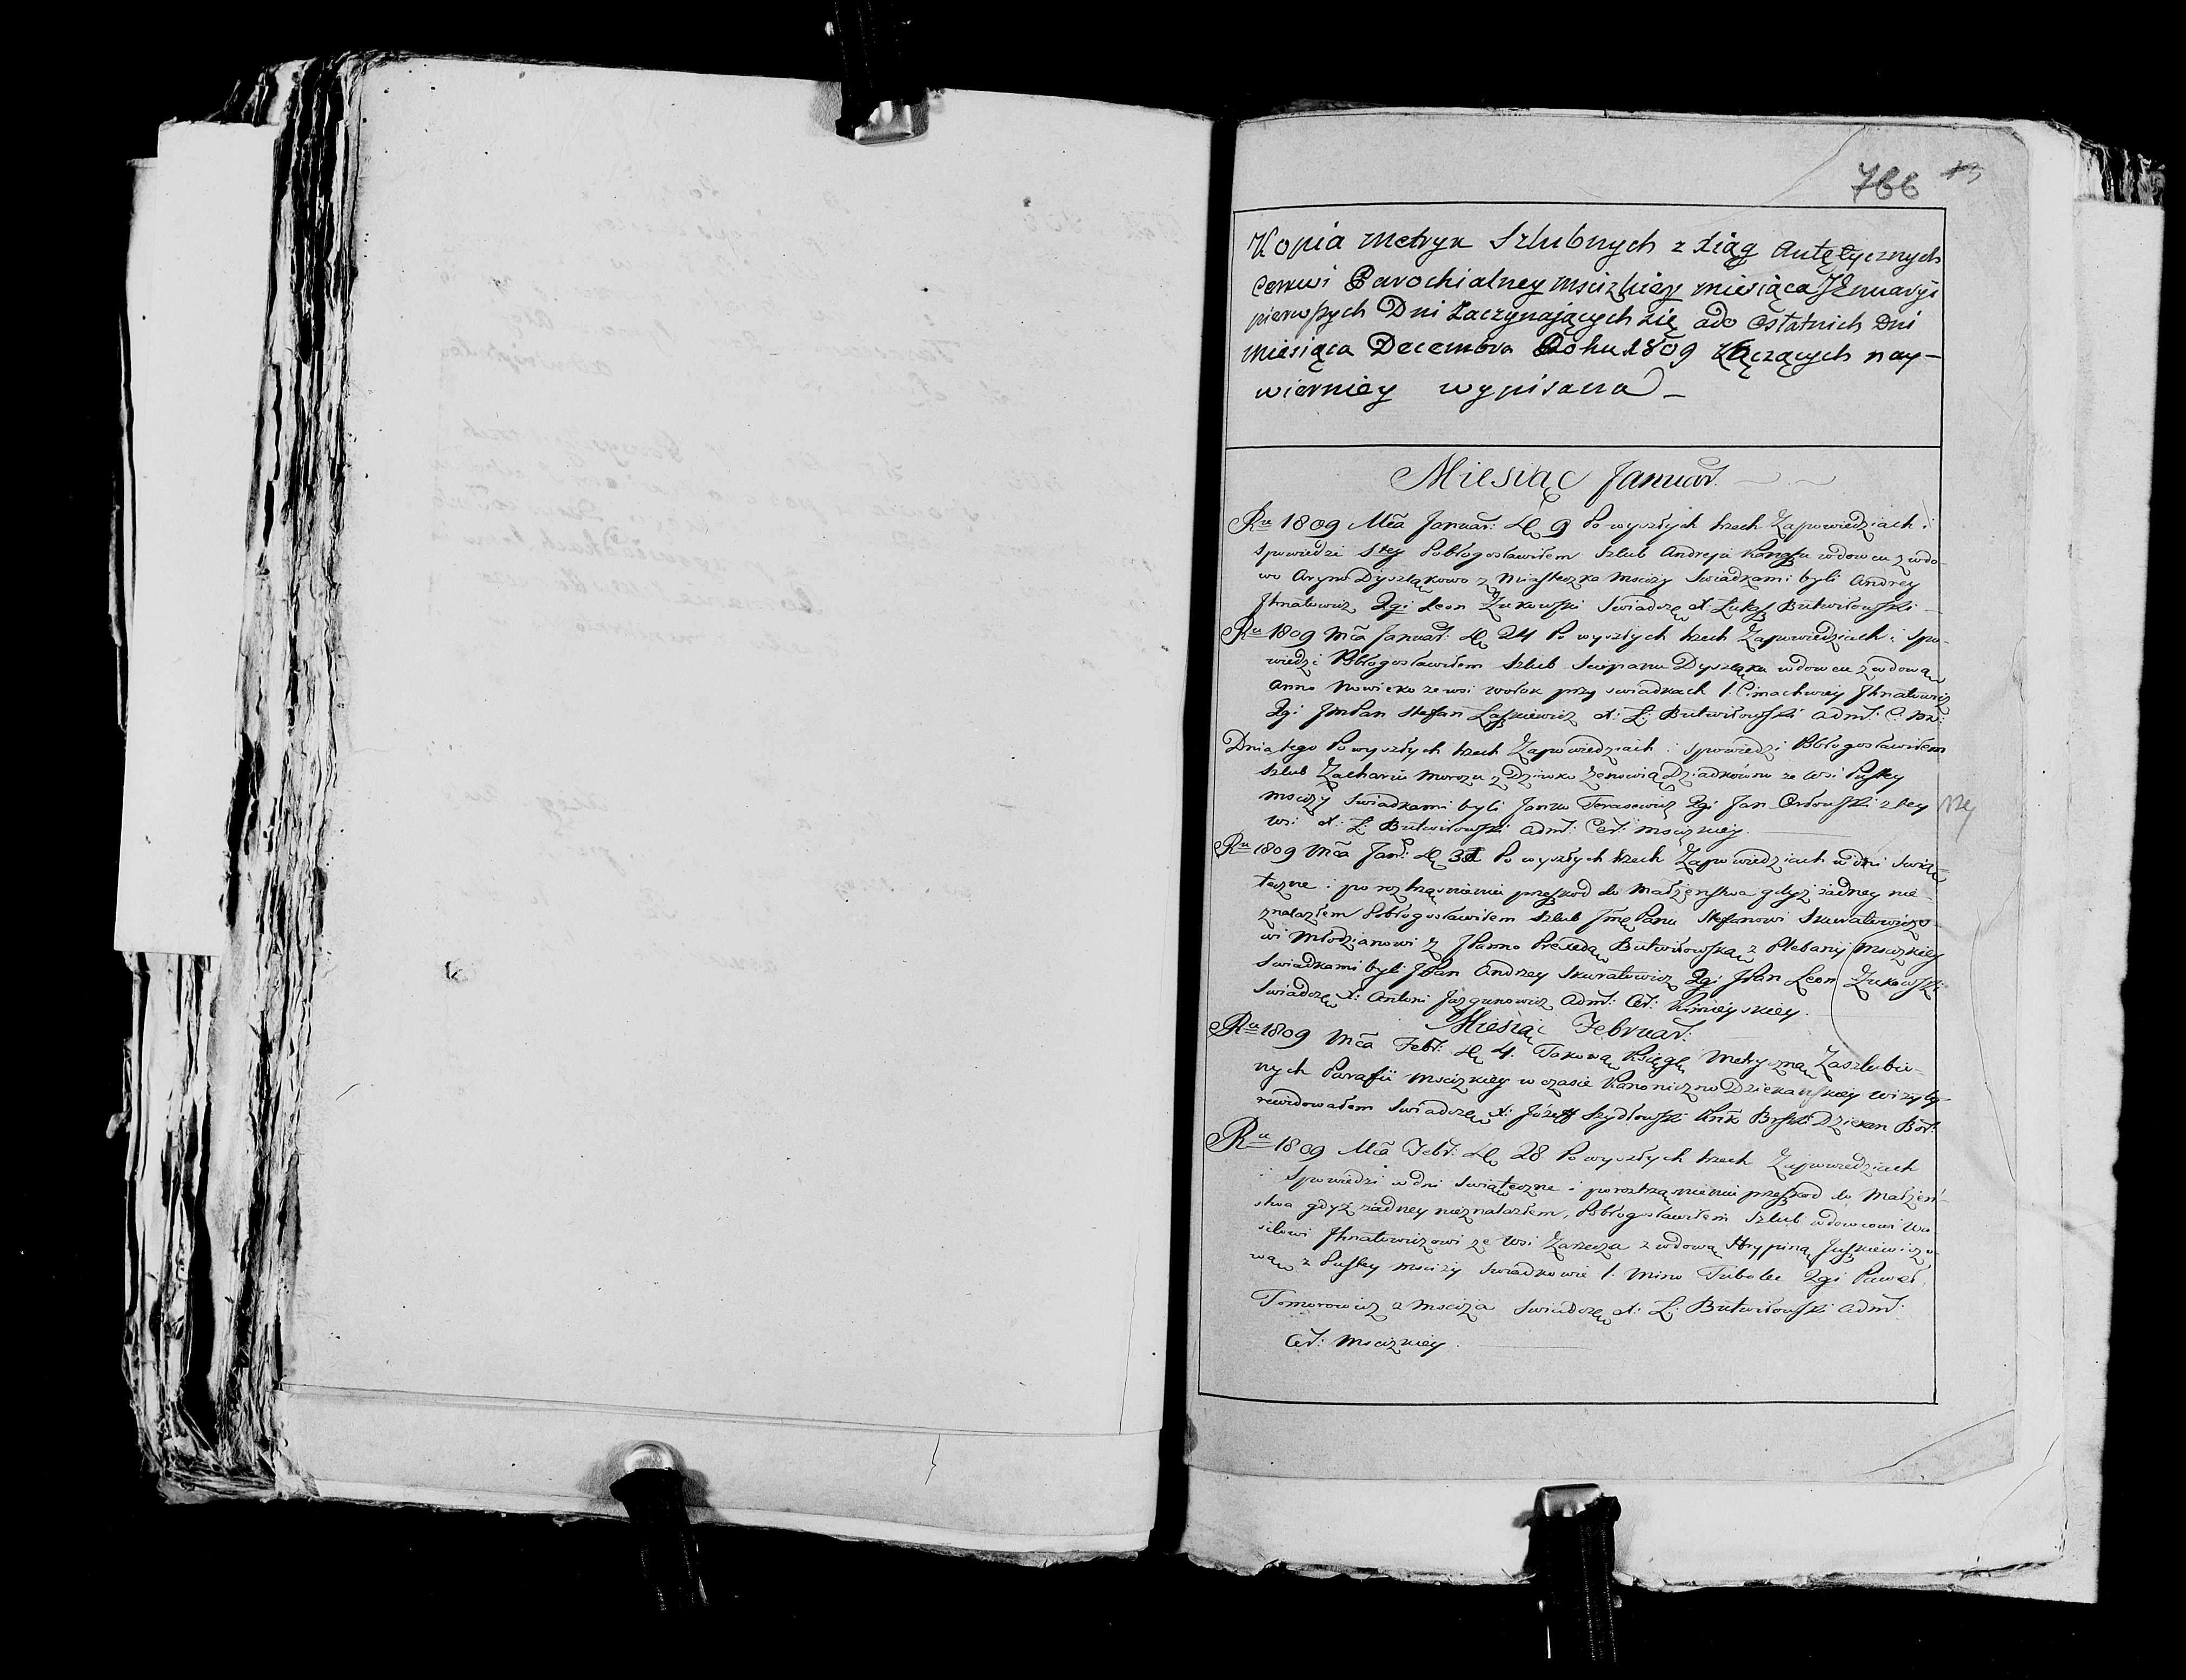 766 73
Kopia Metryk Szlubnych z Xiąg Autętycznych
Cerkwi Parochialney Mscizkiey miesiąca Jenuaryi
pierwszych Dni Zaczynających się ado Ostatnich Dni
miesiąca Decembra Roku 1809 kączących nay-
wierniey wypisana
Miesiąc Januar.
Ru 1809 Mca Januar: D 9 Po wyszłych trzech Zapowiedziach i
Spowiedzi Stey Pobłogosławiłem Szlub Andreja wdowca z wdo-
wo Dyszląkowo z Miasteczka Mscizy Swiadkami byli Andrey
Ihnatowicz 2gi Leon Zukowski Swiadczę X. Lukasz Butwiłowski
Ru 1809 Mca Januar: D 24 Po wyszłych trzech Zapowiedziach i Spo-
wiedzi Pobłogosławiłem Szlub Scipana Dyszląka wdowca z wdową
Anno Nowicko ze wsi Wołok przy swiadkach 1. Ihnatowicz
2gi JmPan Stefan Laskiewicz X: L: Butwiłowski Adm: C: Ms:
Dnia tego Po wyszłych trzech Zapowiedziach i spowiedzi Pobłogosławiłem
szlub Zacharia Moroza z Dziewko Zenowią Dziadkówno ze Wsi Pustey
Mscizy Swiadkami byli Janko Tarasewicz 2gi Jan Orłowski z tey
wsi X: L: Butwiłowski Adm: Cer: Mscizkiey.
Ru 1809 Mca Jan: D 31 Po wyszłych trzech Zapowiedziach w dni swią
teczne i po roztrąsnieniu przeszkod do Małżenstwa gdyż żadney nie
znalazłem Pobłogosławiłem szlub Jmę Panu Stefanowi Skuratowiczo-
wi Młodzianowi z JPanno Butwiłowską z Plebanij Mscizkiey
Swiadkami byli JPan Andrzey Skuratowicz 2gi JPan Leon Zukowski
Swiadczę X: Antoni Jazgunowicz Adm: Cer: Kimieyskiey.
Miesiąc Februar:
Ru 1809 Mca Febr: D 4. Takową Księgę Metryczną Zaszlubio-
nych Parafii Mscizkiey w czasie Kanoniczno Dziekanskiey Wizyty
rewidowałem Swiadczę X: Józeff Szydłowski Dziekan Bor:
Ru 1809 Mca Febr: D 28 Po wyszłych trzech Zapowiedziach
i Spowiedzi w dni Swiąteczne i po roztrząsnieniu przeszkod do Małżeń-
stwa gdyż żadney nieznalazłem, Pobłogosławiłem Szlub wdowcowi Wa
silowi Ihnatowiczowi ze Wsi Zarecza z wdową Hrypiną Juszkiewiczo-
wą z Pustey Mscizy Swiadkowie 1. Mino Tubolec 2gi Paweł
Tomorowicz z Msciza Swiadczę X: L: Butwiłowski Adm:
Cer: Mscizkiey.